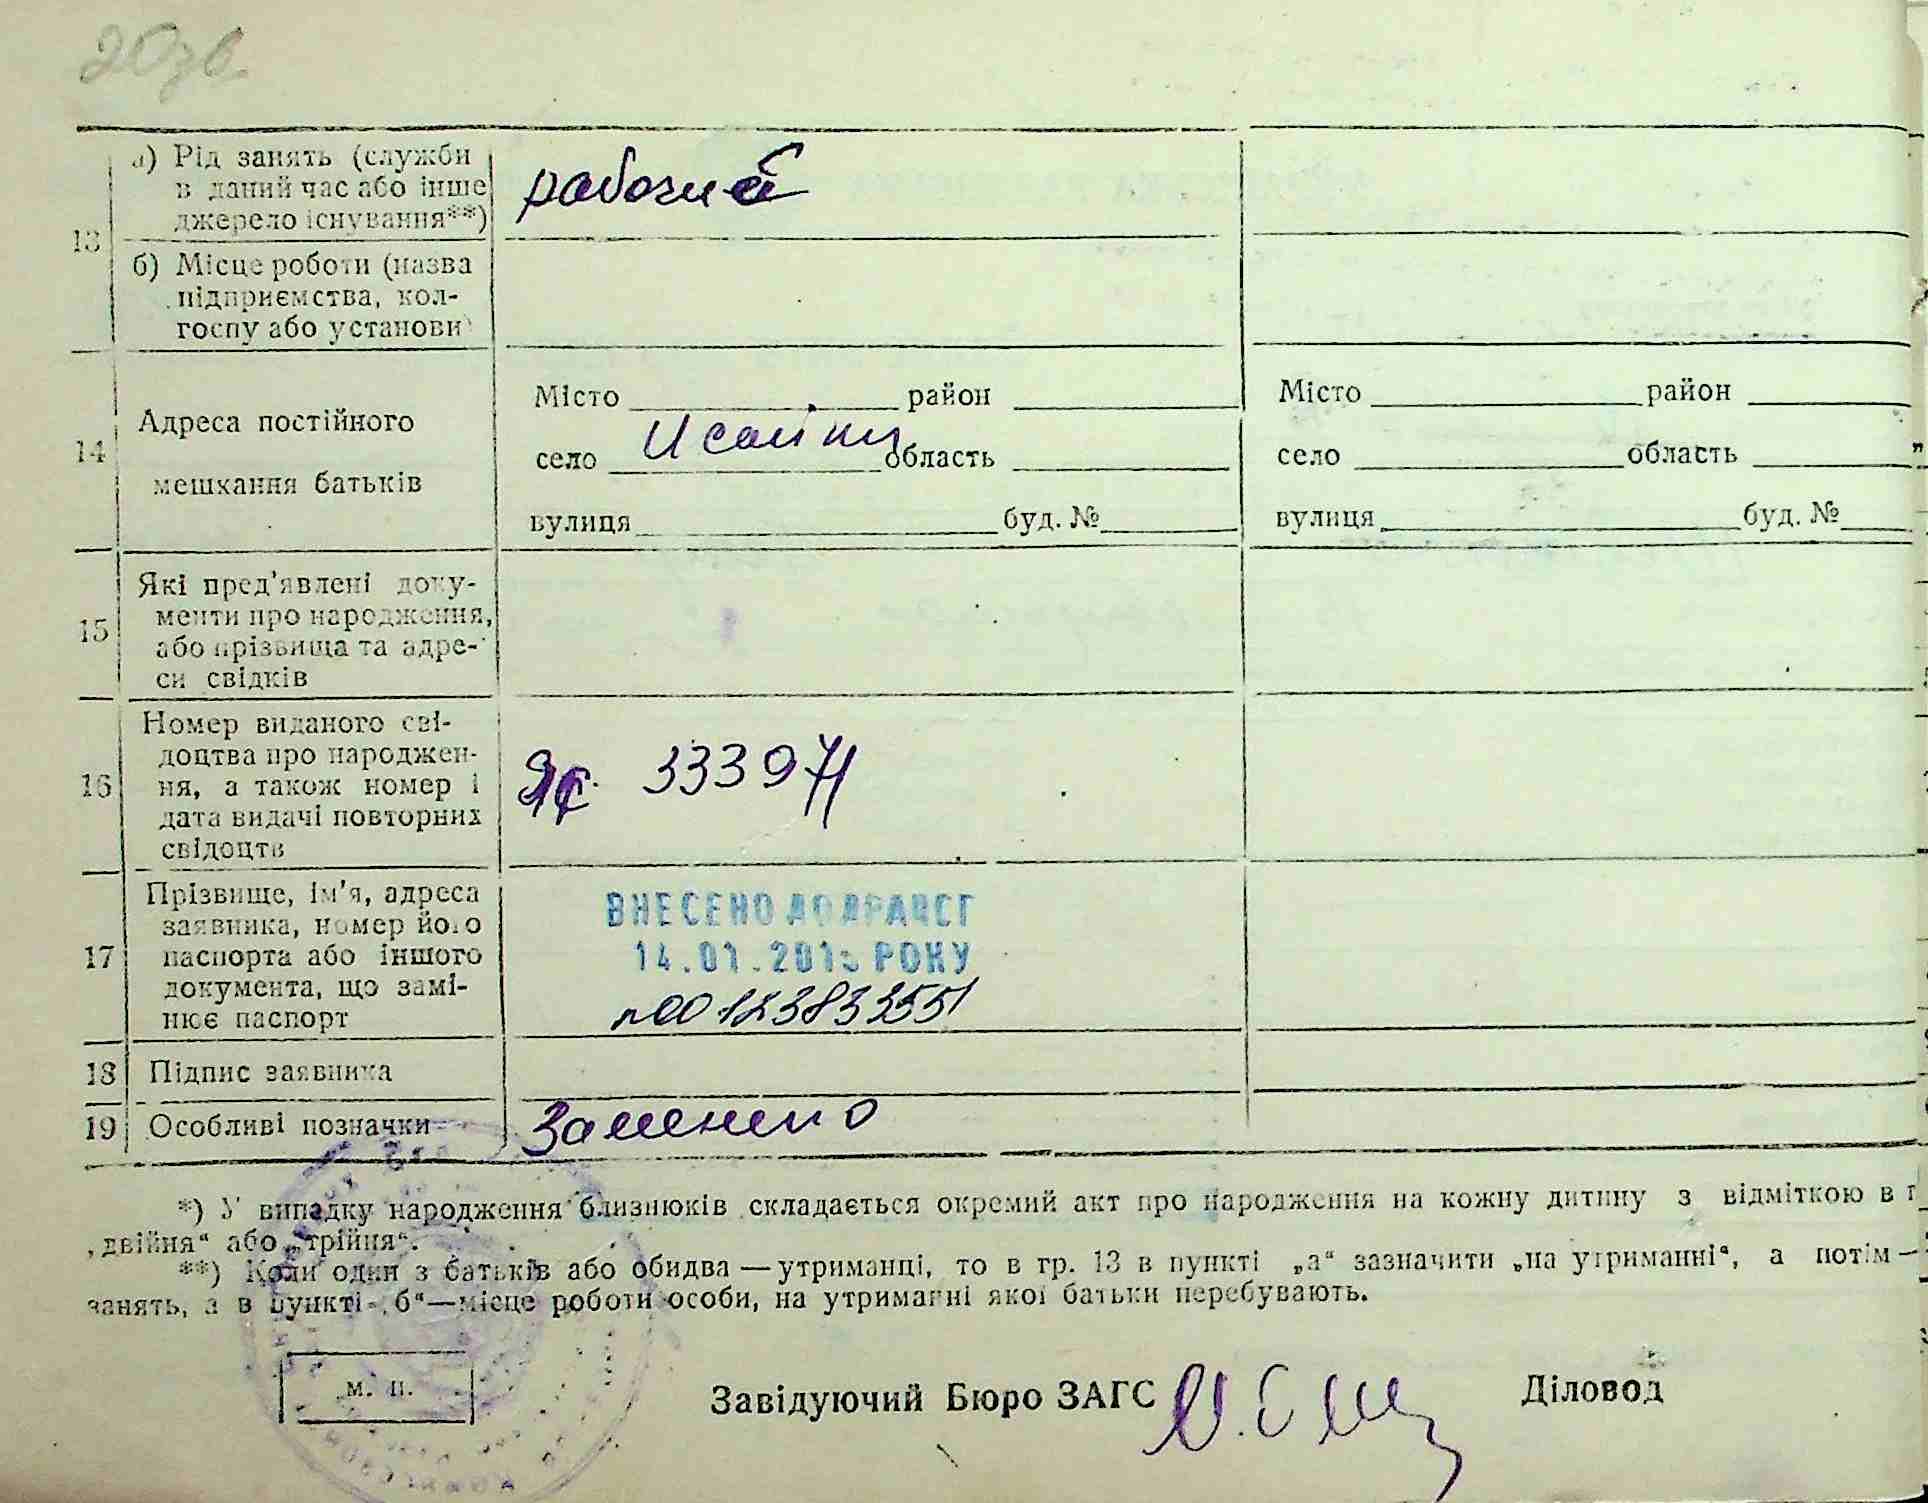 20зв.
13
а) Рід занять (служби
в даний час або інше
джерело існування**)
рабочий
б) Місце роботи (назва
підприємства, кол-
госпу або установи)
14
Адреса постійного
мешхання батьків
Місто район
село Исайки область
вулиця буд. №
Місто район
село область
вулиця буд. №
15
Які пред'явлені доку-
менти про народження,
або прізвища та адре-
си свідків
16
Номер виданого сві-
доцтва про народжен-
ня, а також номер і
дата видачі повторних
свідоцтв
333971
17
Прізвище, ім'я, адреса
заявника, номер його
паспорта або іншого
документа, що замі-
нює паспорт
ВНЕСЕНО ДО ДРАЦСГ
14.01.2015 РОКУ
18
Підпис заявника
19
Особливі позначки
Заменено
*) У випадку народження близнюків складається окремий акт про народження на кожну дитину з відміткою в г
„двійня“ або „трійня“.
**) Коли один з батьків або обидва — утриманці, то в гр. 13 в пункті „а“ зазначити „на утриманні“, а потім —
занять, а в пункті „б“ — місце роботи особи, на утриманні якої батьки перебувають.
м. п.
Завідуючий Бюро ЗАГС
Діловод